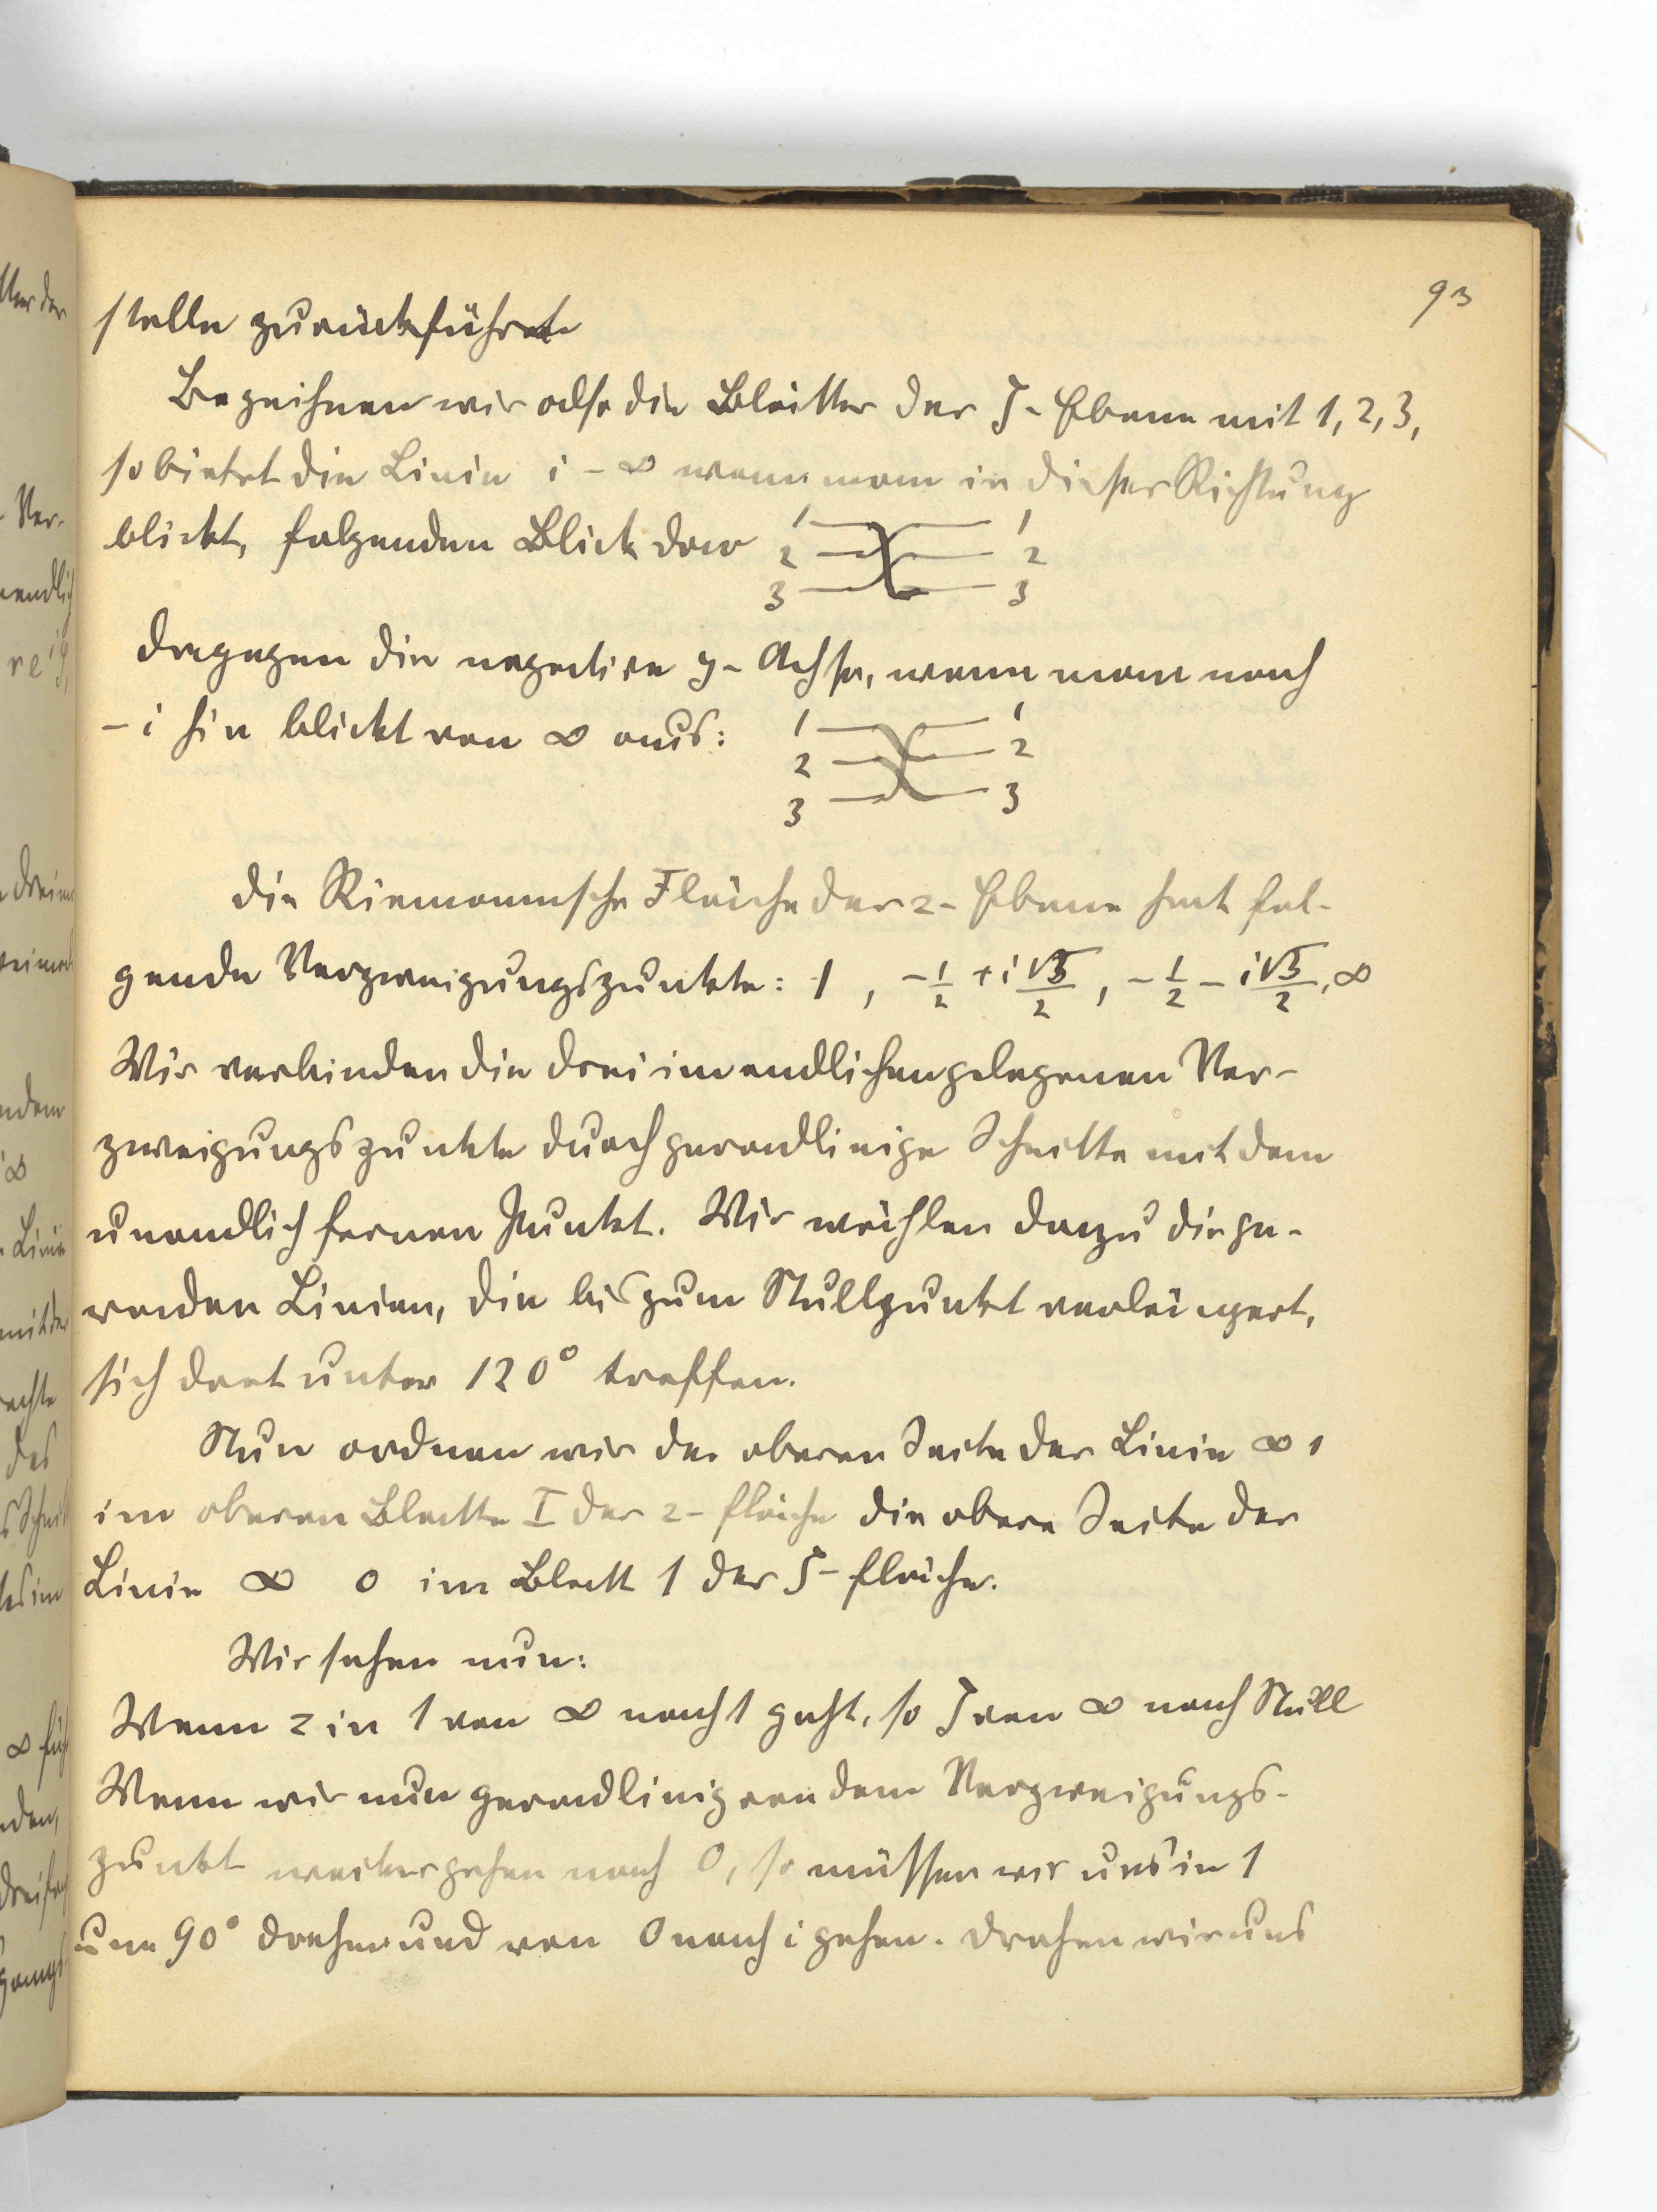 93
stelle zurückführt
Bezeichnen wir also die Blätter der ζ-Ebene mit 1, 2, 3,
so bietet die Linie i – ∞ wenn man in dieser Richtung
blickt, folgenden Blick dar
1 1
2 2
3 3
dagegen die negative y-Achse, wenn man nach
– i hin blickt von ∞ aus:
1 1
2 2
3 3
Die Riemannsche Fläche der z-Ebene hat fol-
gende Verzweigungspunkte: 1, -1/2 + i √3/2, -1/2 - i√3/2, ∞
Wir verbinden die drei im endlichen gelegenen Ver-
zweigungspunkte durch geradlinige Schnitte mit dem
unendlich fernen Punkt. Wir wählen dazu die ge-
raden Linien, die bis zum Nullpunkt verlängert,
sich dort unter 120° treffen.
Nun ordnen wir der oberen Seite der Linie ∞ 1
im oberen Blatte I der z-fläche die obere Seite der
Linie ∞ 0 im Blatt 1 der ζ-fläche.
Wir sehen nun:
Wenn z in 1 von ∞ nach 1 geht, so ζ von ∞ nach Null
Wenn wir nun geradlinig von dem Verzweigungs-
punkt weiter gehen nach 0, so müssen wir uns in 1
um 90° drehen und von 0 nach i gehen. Drehen wir uns